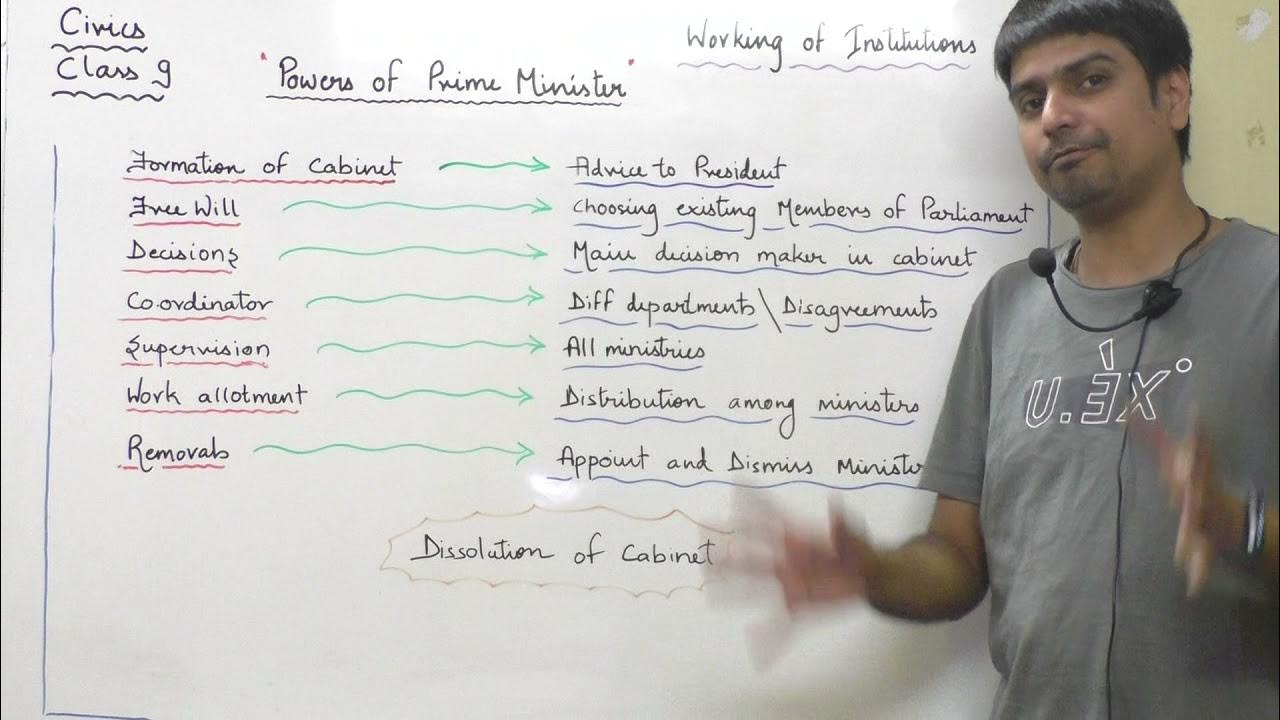 Civics
Class 9
"Powers of Prime Minister"
Working of Institutions
Formation of Cabinet → Advice to President
Free Will → Choosing existing Members of Parliament
Decisions → Main decision maker in cabinet
Co.ordinator → Diff departments \ Disagreements
Supervision → All ministries
Work allotment → Distribution among ministers
Removals → Appoint and Dismiss Ministe
Dissolution of Cabinet
U.EX°